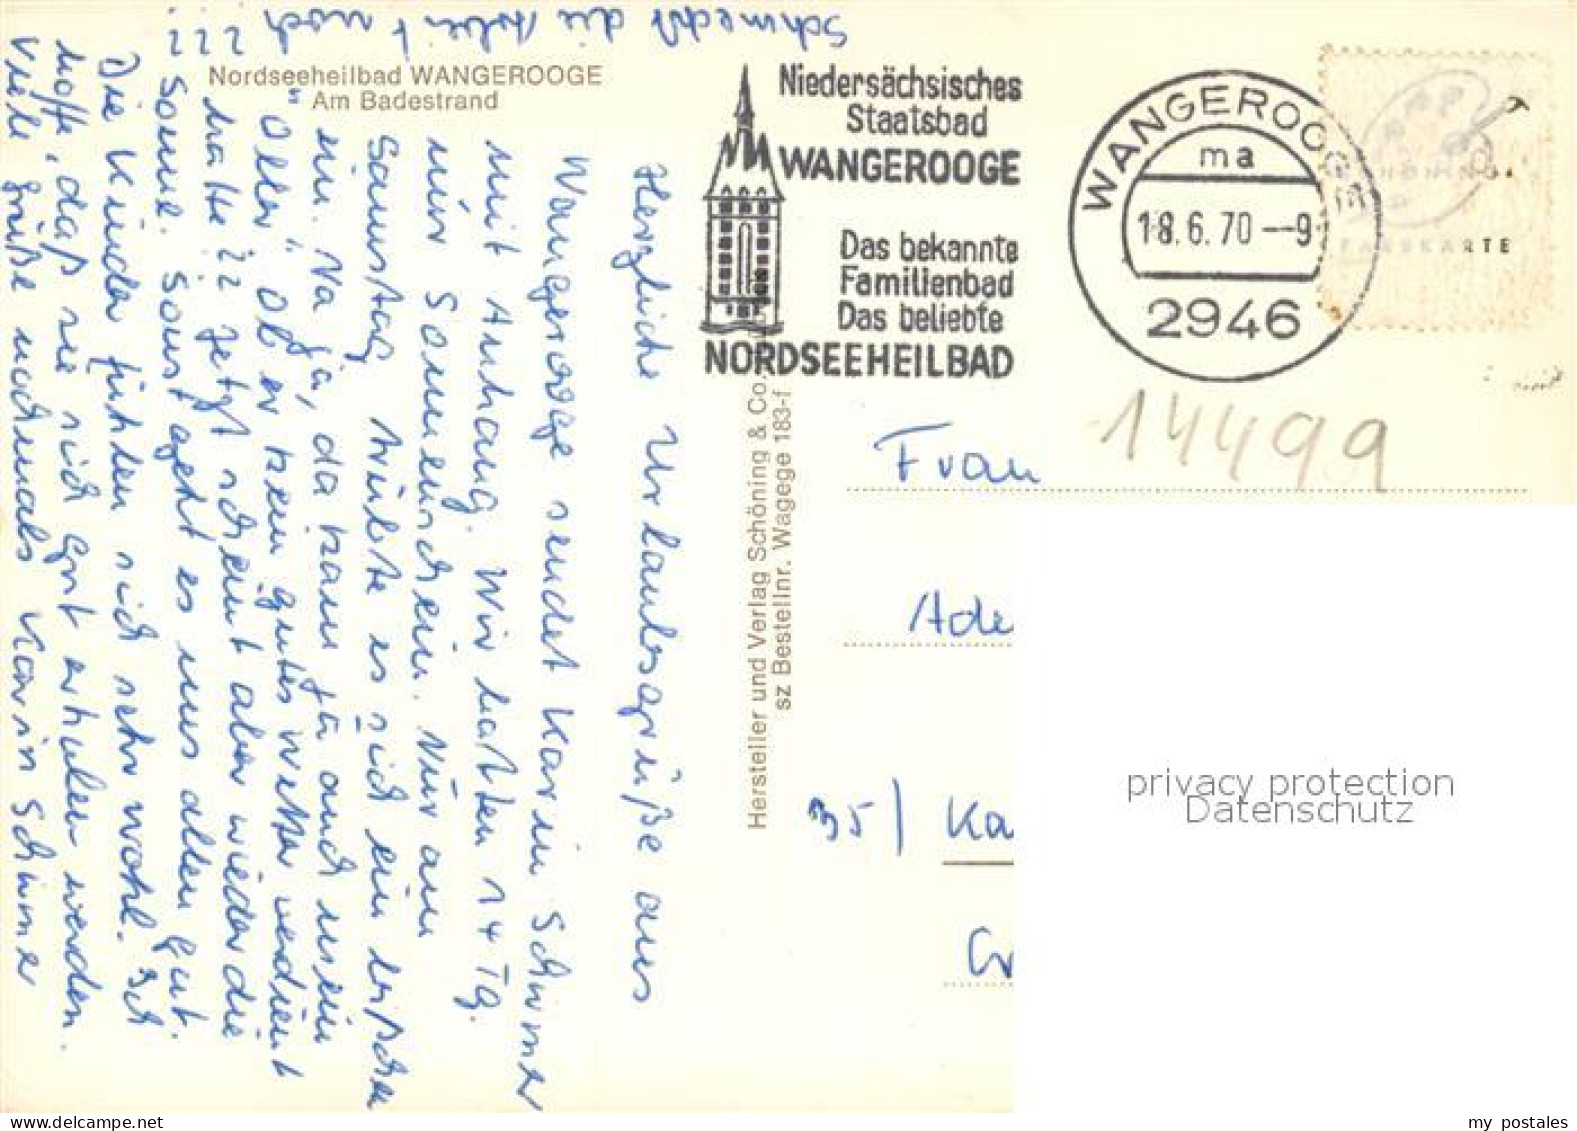 Nordseeheilbad WANGEROOGE
Am Badestrand
Niedersächsisches
Staatsbad
WANGEROOGE
Das bekannte
Familienbad
Das beliebte
NORDSEEHEILBAD
WANGEROOGE
ma
18.6.70--9
2946
FARBKARTE
14499
Herzliche Urlaubsgrüße aus
Wangerooge sendet Karin Schirmer
mit Anhang. Wir hatten 14 Tg.
nur Sonnenschein. Nur am
Samstag trübte es sich ein bißchen
ein. Na ja, da kam ja auch mein
"Oller" Ob er kein gutes Wetter verdient
hatte ?? Jetzt scheint aber wieder die
Sonne. Sonst geht es uns allen gut.
Die Kinder fühlen sich sehr wohl. Ich
hoffe, daß sie sich gut erholen werden.
Viele Grüße nochmals Karin Schirmer
Schmeckt die Arbeit noch
???
Hersteller und Verlag Schöning & Co.
sz Bestellnr. Wagege 183-f
Frau
Ade
35 | Ka
privacy protection
Datenschutz
my postales